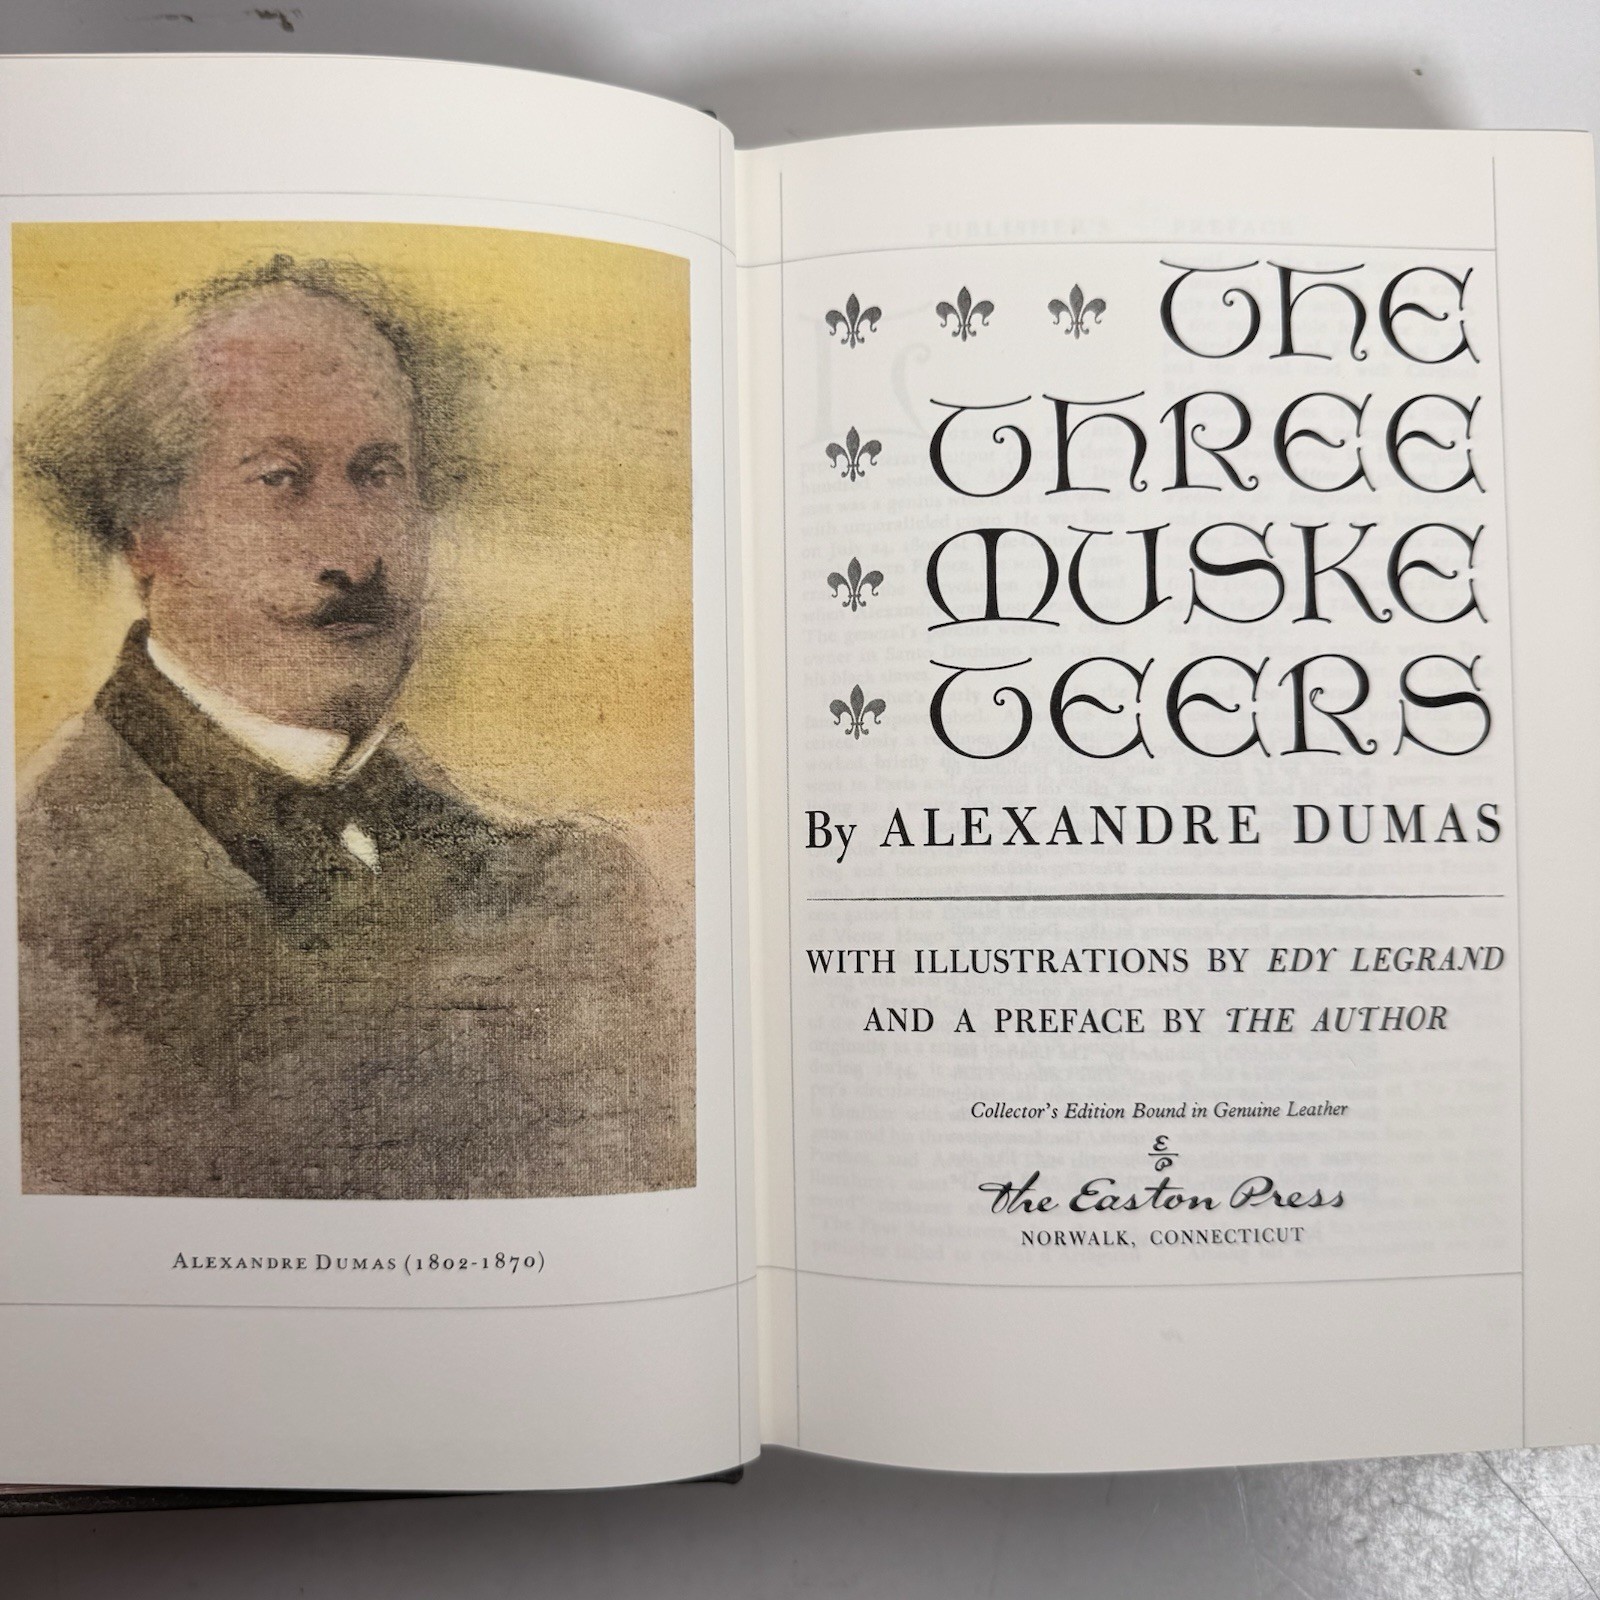 ALEXANDRE DUMAS (1802-1870)
PUBLISHER'S PREFACE
THE
THREE
MUSKE
TEERS
By ALEXANDRE DUMAS
WITH ILLUSTRATIONS BY EDY LEGRAND
AND A PREFACE BY THE AUTHOR
Collector's Edition Bound in Genuine Leather
E
P
The Easton Press
NORWALK, CONNECTICUT